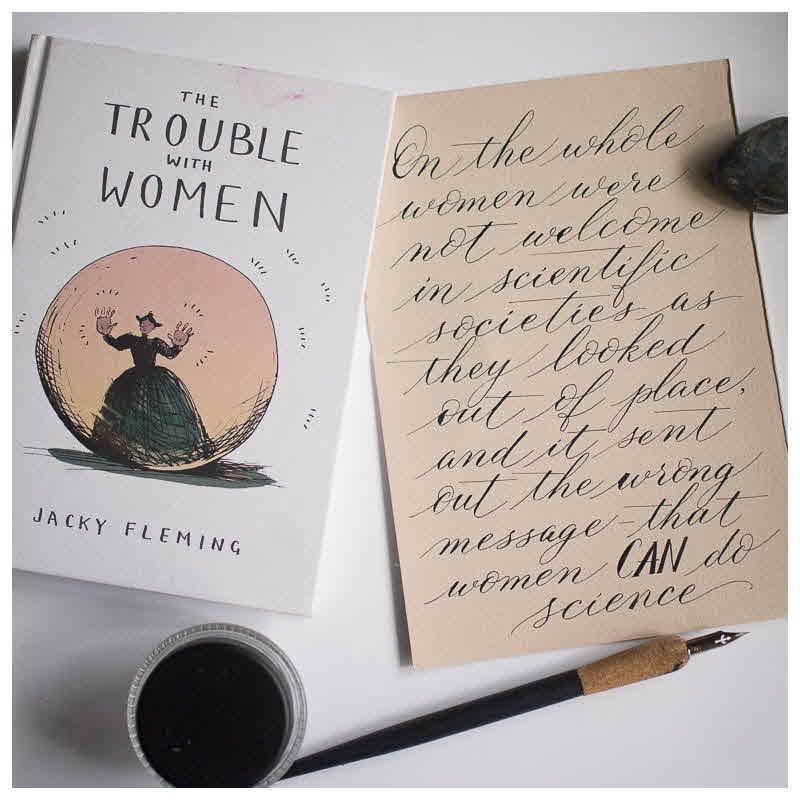 THE
TROUBLE
WITH
WOMEN
JACKY FLEMING
On the whole
women were
not welcome
in scientific
societies as
they looked
out of place,
and it sent
out the wrong
message - that
women CAN do
science